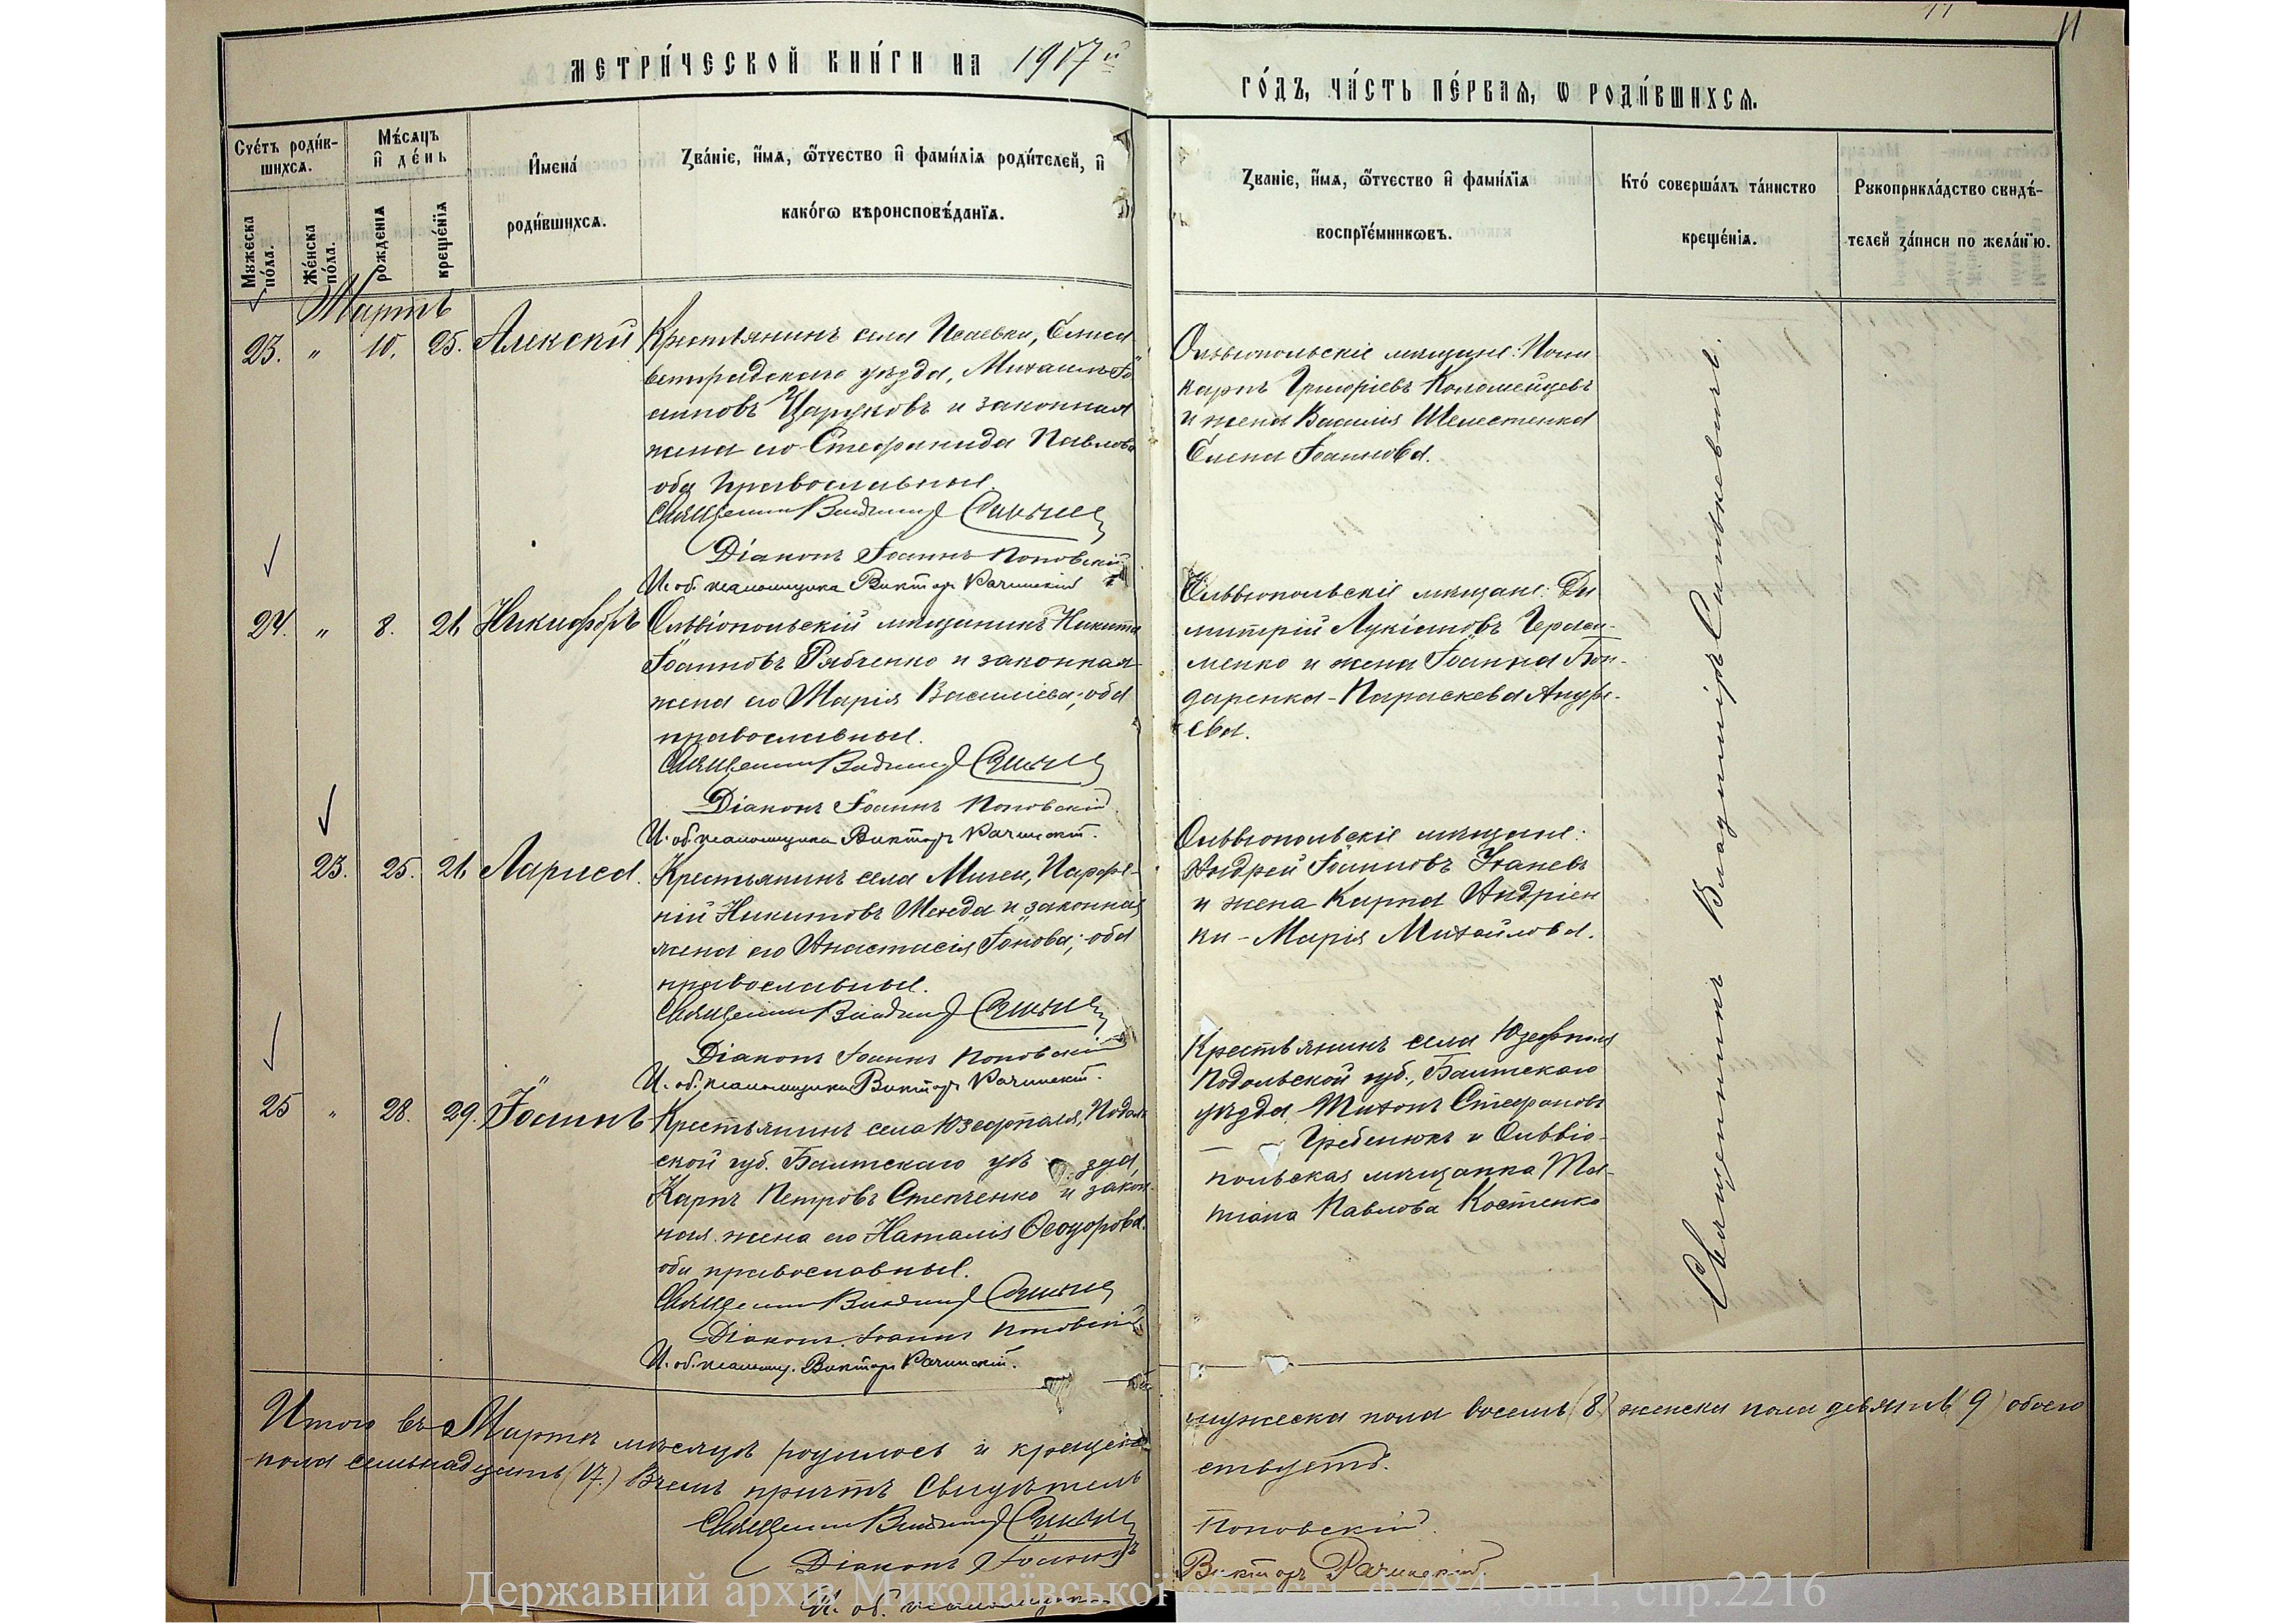 11
11
МЕТРИ́ЧЕСКОЙ КНИ́ГИ НА 1917й
ГО́ДЪ, ЧА́СТЬ ПЕ́РВАѦ, Ѡ РОДИ́ВШИХСѦ.
Сче́тъ роди́в-
шихсѧ.
Мꙋжеска по́ла.
Же́нска по́ла.
Мѣ́сѧцъ и҆ де́нь
рожденїѧ
креще́нїѧ
И҆мена́
роди́вшихсѧ.
Зва́нїе, и҆́мѧ, ѻ҆́тчество и҆ фами́лїѧ роди́телей, и҆
како́гѡ вѣроисповѣ́данїѧ.
Званїе, и҆́мѧ, ѻ҆́тчество и҆ фами́лїѧ
воспрїе́мникѡвъ.
Кто́ соверша́лъ та́инство
креще́нїѧ.
Рꙋкоприкла́дство свидѣ́-
телей за́писи по жела́нїю.
Мартъ
23. " 10. 25. Алексѣй
Крестьянинъ села Исаевки, Елиса
ветградскаго уѣзда, Михаилъ Іо
анновъ Царуковъ и законная
жена его Стефанида Павлова
оба православные.
Священникъ Владиміръ
Діаконъ Іоаннъ Поповскій
И. об. псаломщика Викторъ Рачинскій
Ольвіопольскіе мѣщане: Поли
карпъ Григоріевъ Коломейцевъ
и жена Василія Шелестенка
Елена Іоаннова.
24. " 8. 21. Никифоръ
Ольвіопольскій мѣщанинъ Никита
Іоанновъ Рябченко и законная
жена его Марія Васильева; оба
православные.
Священникъ Владиміръ
Діаконъ Іоаннъ Поповскій
И. об. псаломщика Викторъ Рачинскій.
Ольвіопольскіе мѣщане: Ди
митрій Лукіановъ Гераси-
менко и жена Іоанна Бон-
даренка - Параскева Андре-
ева.
23. 25. 21. Лариса.
Крестьянинъ села Мигеи, Парѳе-
ній Никитовъ и законная
жена его Анастасія Іонова; оба
православные.
Священникъ Владиміръ
Діаконъ Іоаннъ Поповскій
И. об. псаломщика Викторъ Рачинскій.
Ольвіопольскіе мѣщане:
Андрей Іоанновъ
и жена Карпа Андріен
ки - Марія Михайлова.
25 " 28. 29. Іоаннъ
Крестьянинъ села Юзефполя, Подоль
ской губ. Балтскаго уѣзда,
Карпъ Петровъ Степченко и закон
ная жена его Наталія Ѳеодорова
оба православные.
Священникъ Владиміръ
Діаконъ Іоаннъ Поповскій
И. об. псаломщ. Викторъ Рачинскій.
Крестьянинъ села Юзефполя
Подольской губ., Балтскаго
уѣзда Тихонъ Стефановъ
Гребенюкъ и Ольвіо-
польская мѣщанка Та-
тіана Павлова Костенко
Священникъ Владиміръ Синькевичъ.
Итого въ Мартѣ мѣсяцѣ родилось и крещено мужеска пола восемь (8) женска пола девять (9) обоего
пола семьнадцать (17.) В чемъ причтъ свидѣтель ствуетъ.
Священникъ Владиміръ
Діаконъ Іоаннъ Поповскій.
И. об. псаломщика Викторъ Рачинскій.
Державний архів Миколаївської області, ф.484, оп.1, спр.2216